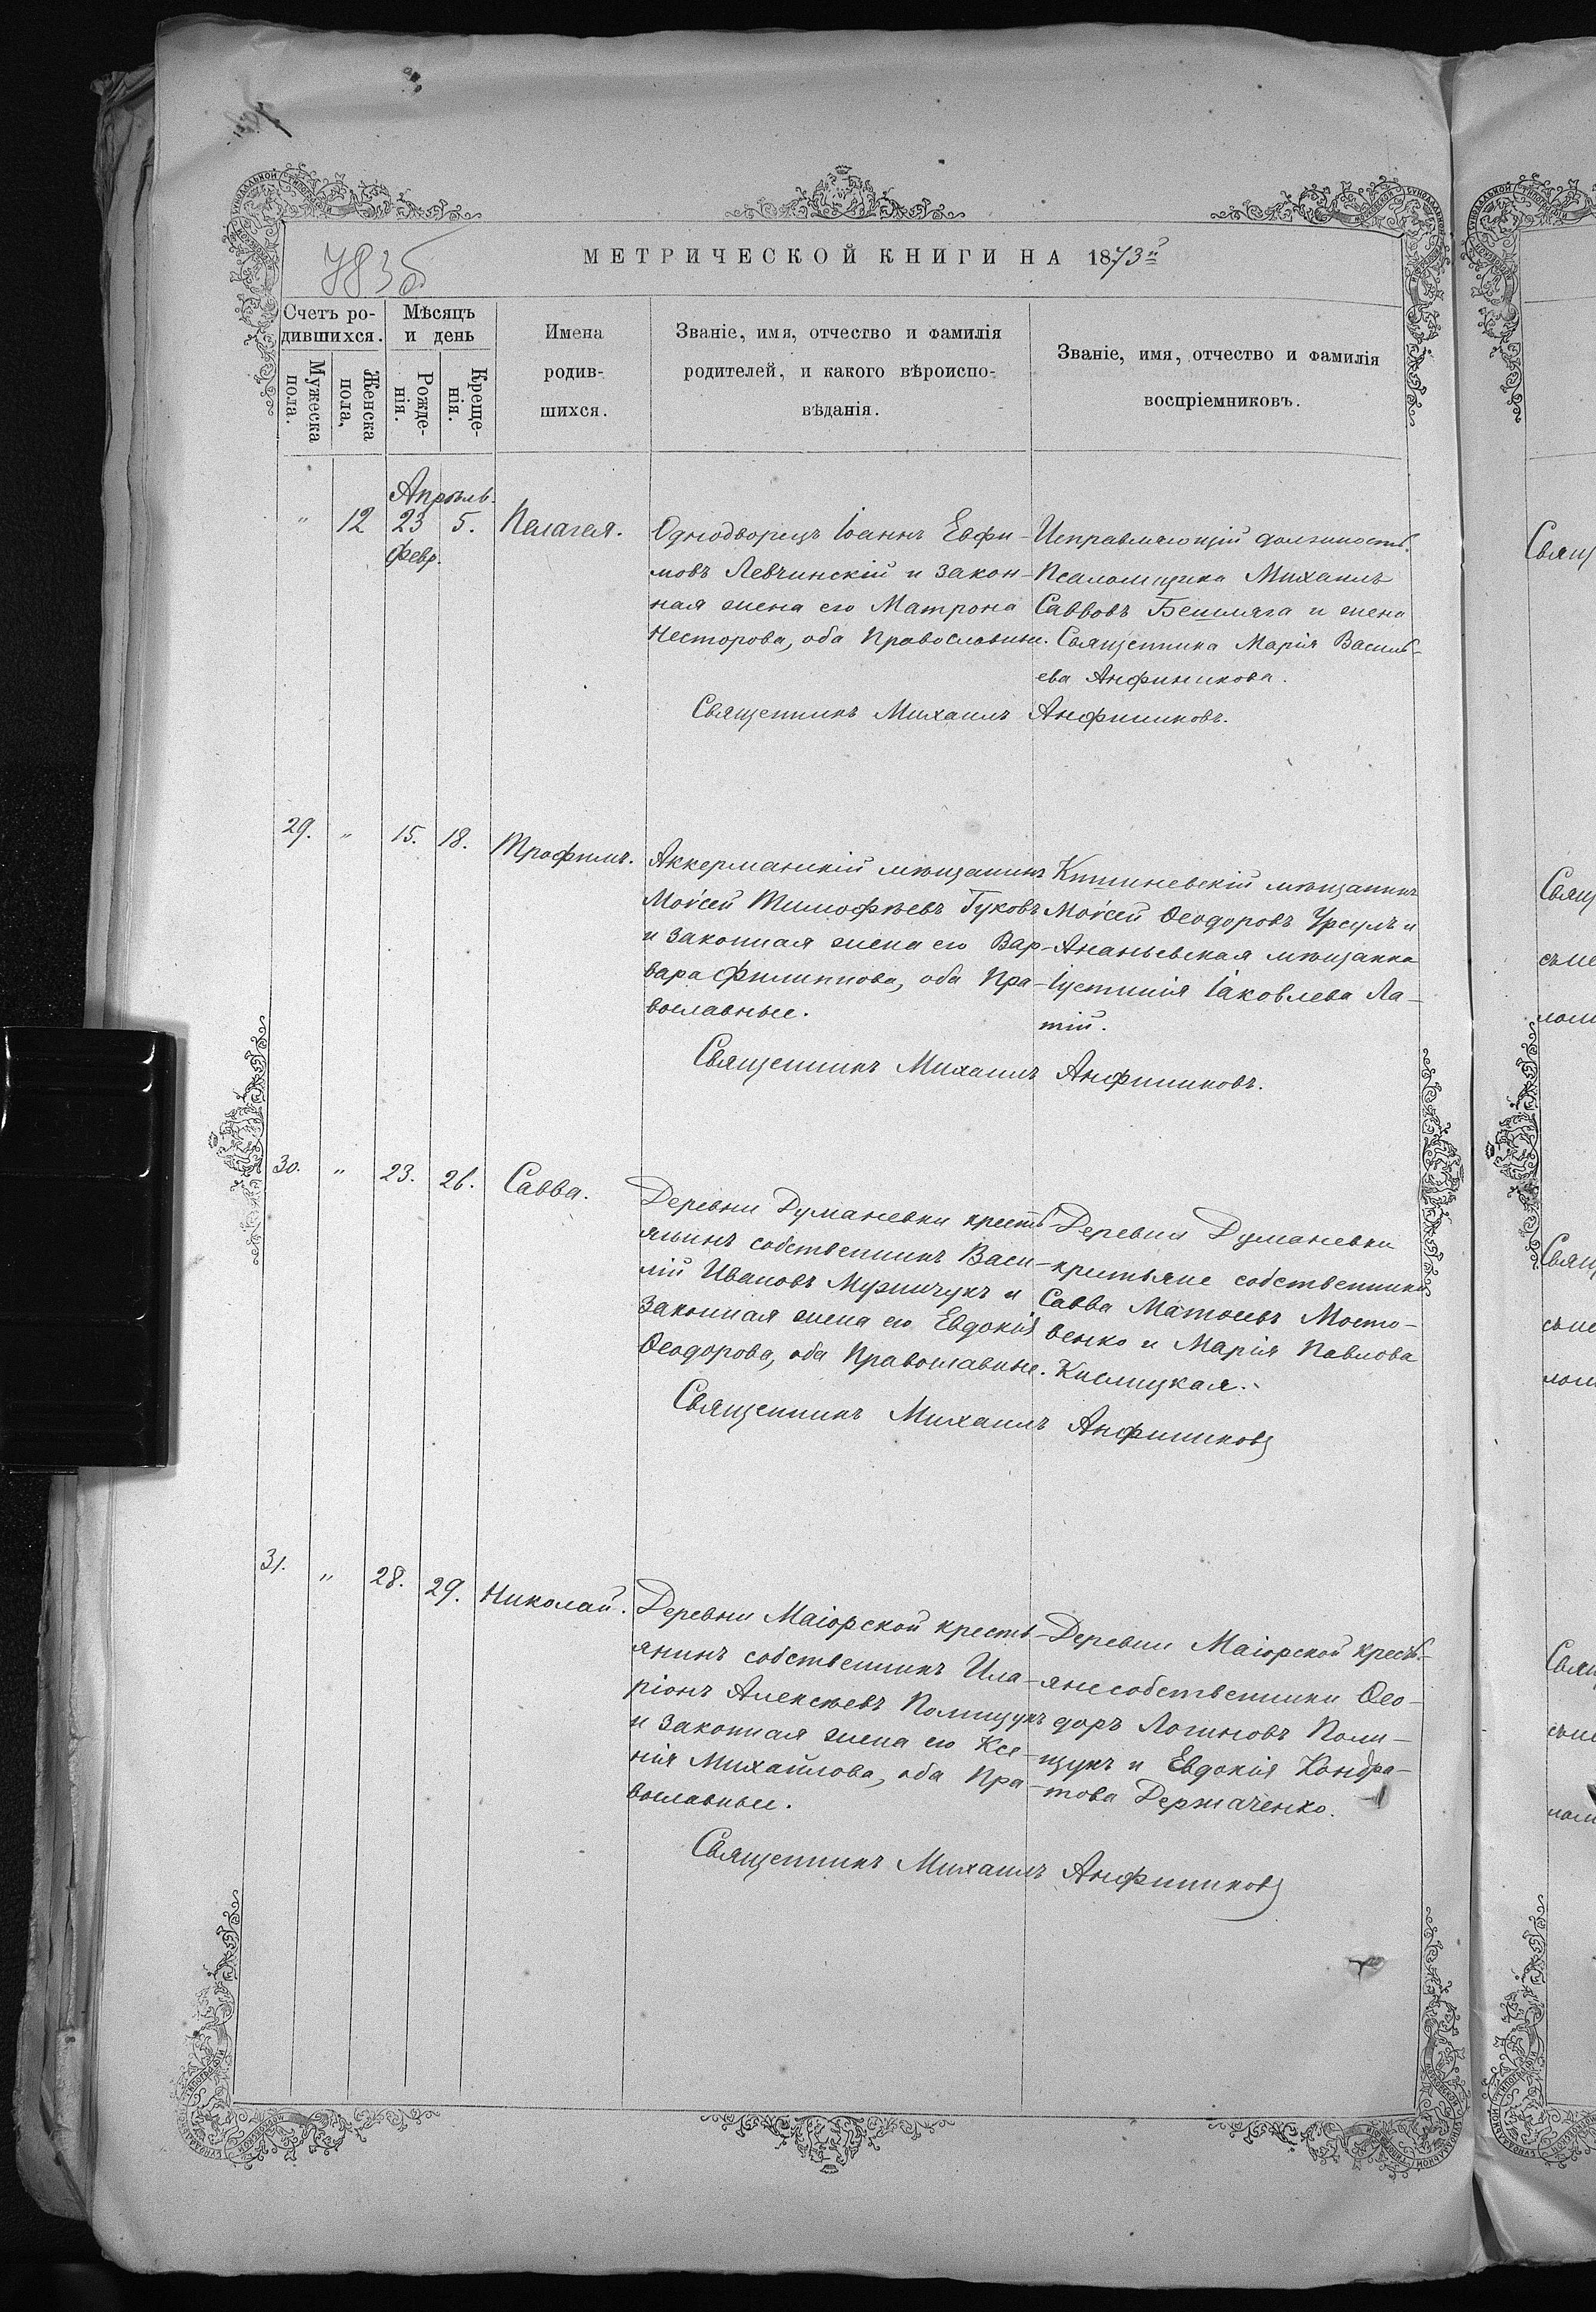 783 б
МЕТРИЧЕСКОЙ КНИГИ НА 1873й
Счетъ ро-
дившихся.
Мужеска
пола.
Женска
пола,
Мѣсяцъ
и день
Рожде-
нія.
Креще-
нія.
Имена
родив-
шихся.
Званіе, имя, отчество и фамилія
родителей, и какого вѣроиспо-
вѣданія.
Званіе, имя, отчество и фамилія
воспріемниковъ.
Апрѣль.
" 12 23 5. Пелагея.
февр.
Однодворецъ Іоаннъ Евфи-
мовъ Левчинскій и закон-
ная жена его Матрона
Несторова, оба Православные.
Исправляющій должность
Псаломщика Михаилъ
Саввовъ Бешляга и жена
Священника Марія Василь-
ева Анфиникова.
Священникъ Михаилъ Анфиниковъ.
29. " 15. 18. Трофимъ.
Аккерманскій мѣщанинъ
Моѵсей Тимофѣевъ Гуковъ
и законная жена его Вар-
вара Филиппова, оба Пра-
вославные.
Кишиневскій мѣщанинъ
Моѵсей Ѳеодоровъ Урсулъ и
Ананьевская мѣщанка
Іустинія Іаковлева Ла-
тій.
Священникъ Михаилъ Анфиниковъ.
30. " 23. 26. Савва.
Деревни Думаневки кресть-
янинъ собственникъ Васи-
лій Ивановъ Музычукъ и
законная жена его Евдокія
Ѳеодорова, оба Православные.
Деревни Думаневки
крестьяне собственники
Савва Матѳеевъ Мосто-
венко и Марія Павлова
Кислицкая.
Священникъ Михаилъ Анфиниковъ
31. " 28. 29. Николай.
Деревни Маіорской кресть-
янинъ собственникъ Ила-
ріонъ Алексѣевъ Полищукъ
и законная жена его Ксе-
нія Михайлова, оба Пра-
вославные.
Деревни Маіорской кресть-
яне собственники Ѳео-
доръ Логиновъ Поли-
щукъ и Евдокія Кондра-
това Держаченко.
Священникъ Михаилъ Анфиниковъ